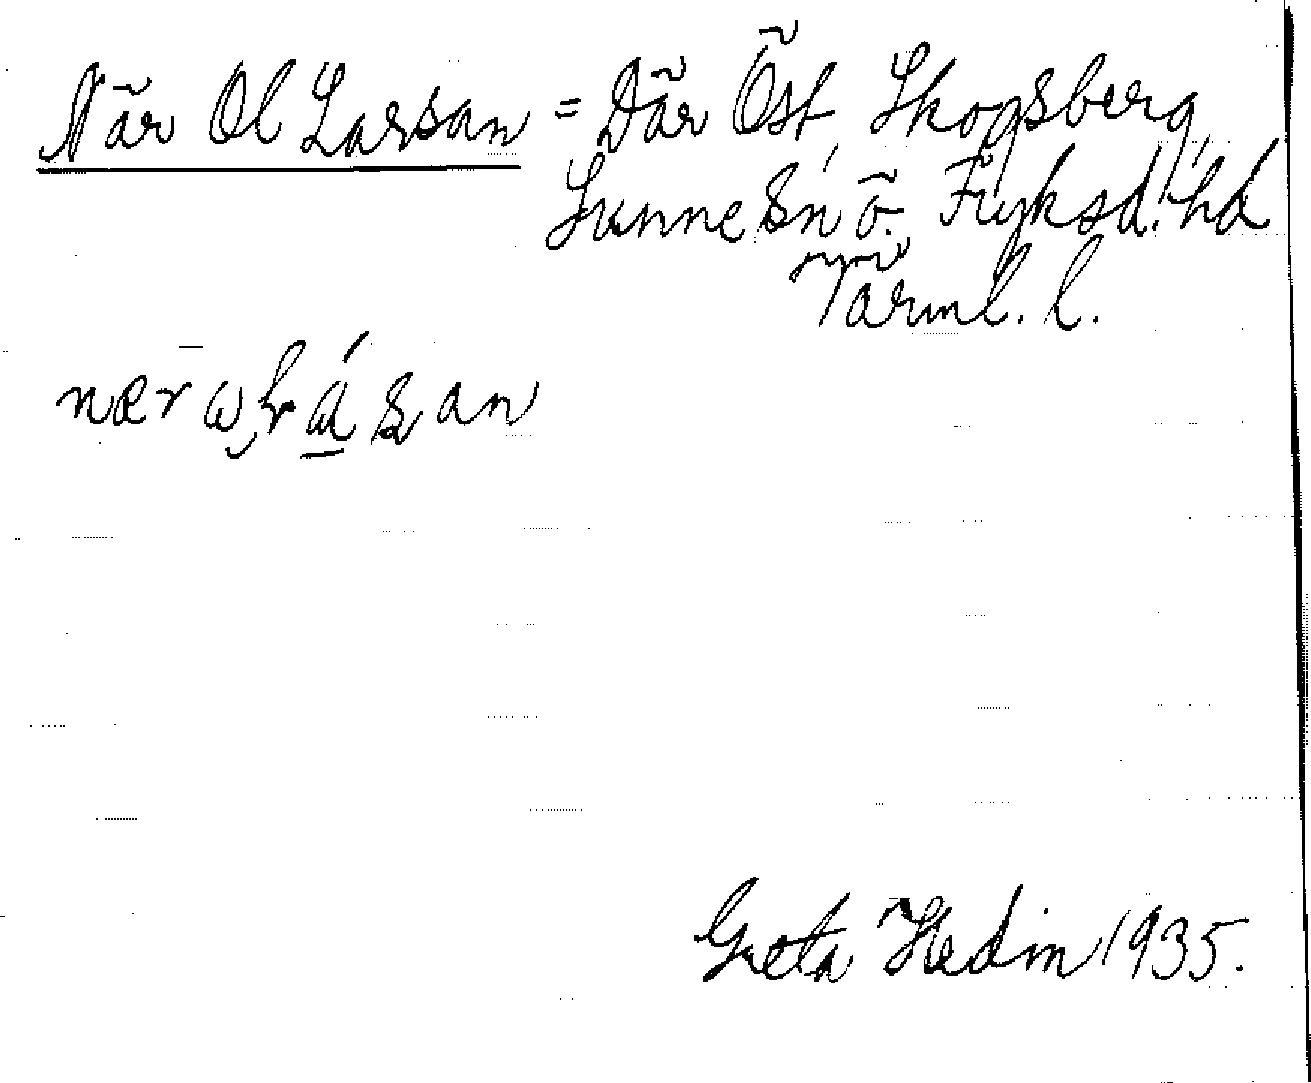 När Ol Larsan = Där Öst, Skogsberg,
Sunne sn Ö. Fryksd. hd
Värml. l.
Greta Hedin 1935.